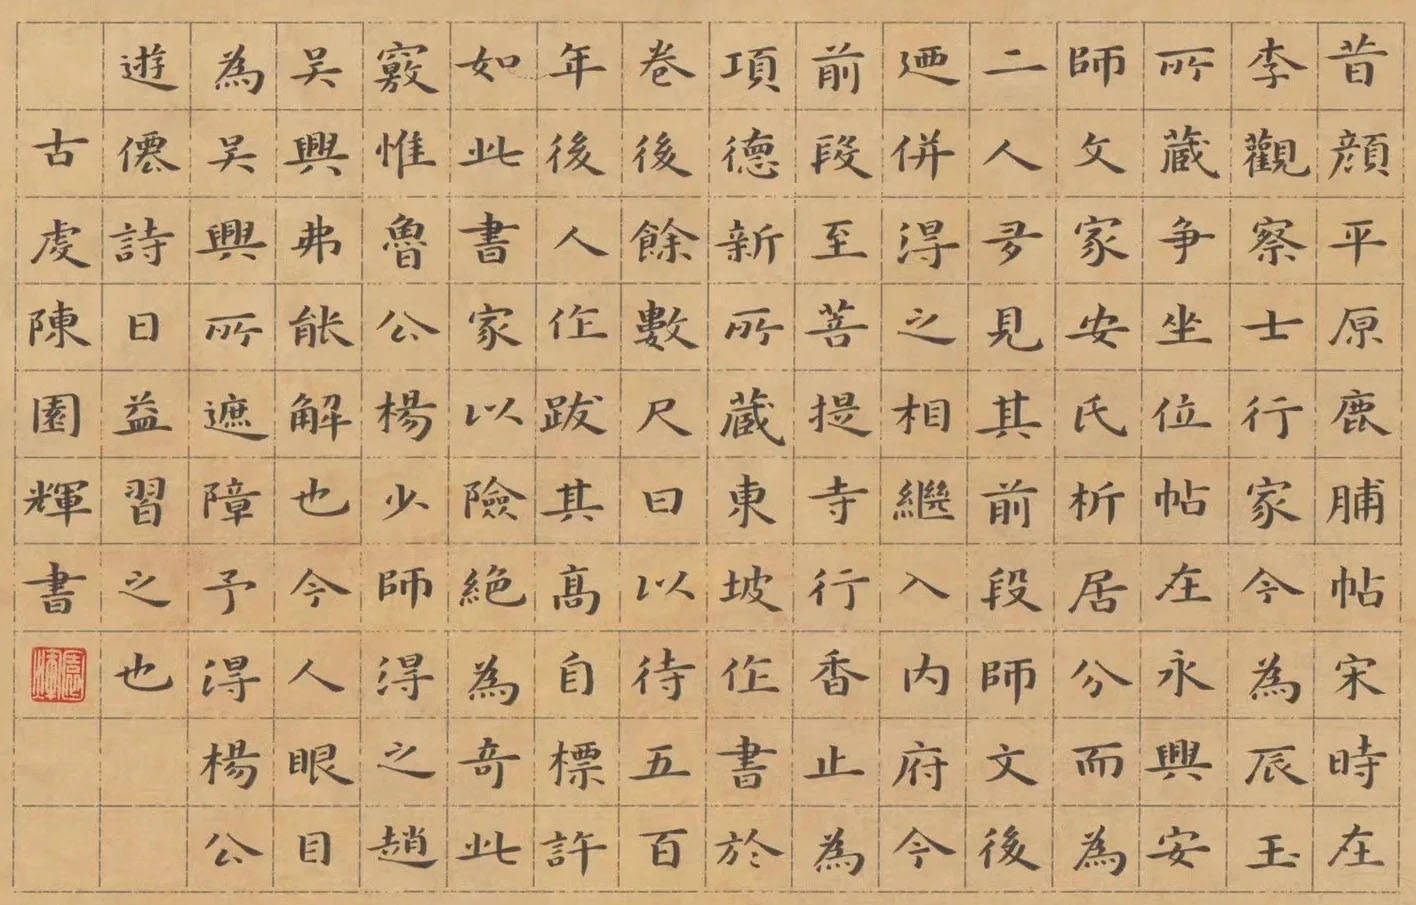 昔顏平原鹿脯帖宋時在
李觀察士行家今為辰玉
所藏爭坐位帖在永興安
師文家安氏析居分而為
二人多見其前段師文後
迺併得之相繼入內府今
前段至菩提寺行香止為
項德新所藏東坡作書於
卷後餘數尺曰以待五百
年後人作跋其高自標許
如此書家以險絕為奇此
竅惟魯公楊少師得之趙
吳興弗能解也今人眼目
為吳興所遮障予得楊公
遊僊詩日益習之也
古虔陳園輝書
園輝